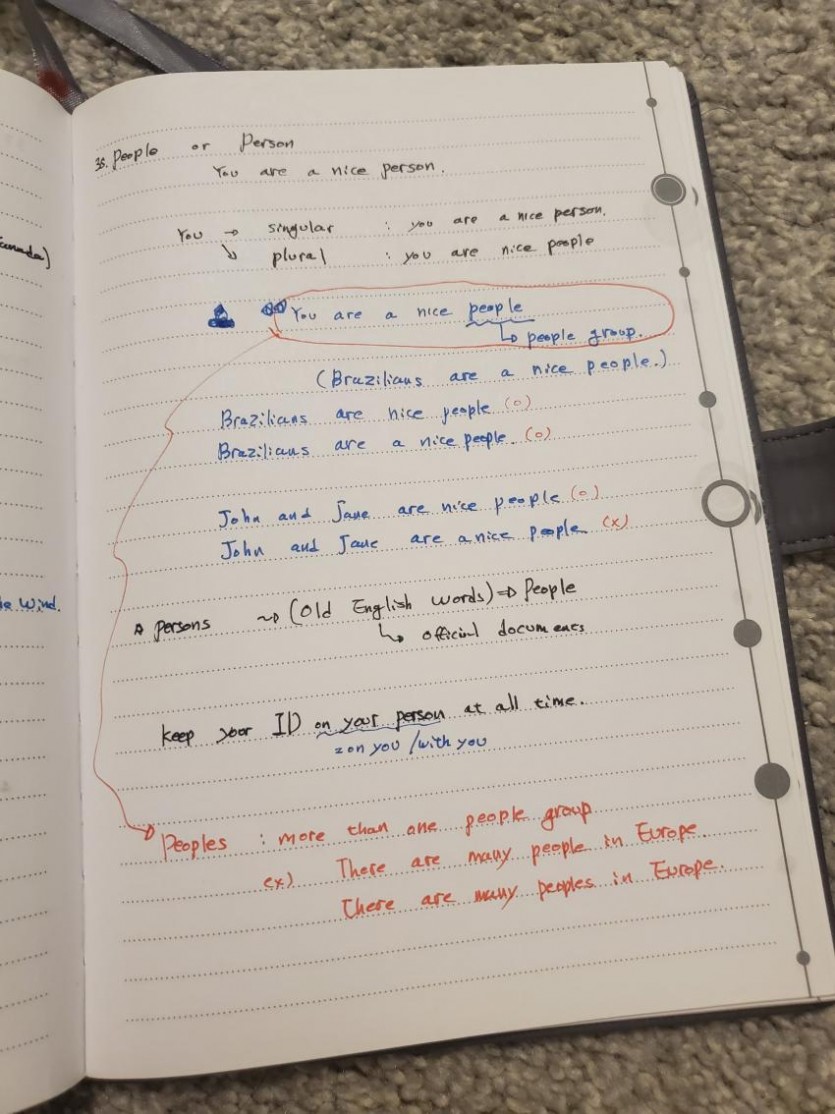 Canada)
de Wind.
38. People or Person
You are a nice person.
You → singular : you are a nice person.
↳ plural : you are nice people
You are a nice people
↳ people group.
(Brazilians are a nice people.)
Brazilians are nice people (o)
Brazilians are a nice people. (o)
John and Jane are nice people (o)
John and Jane are a nice people (x)
persons ~> (Old English words) => People
↳ official documents
keep your ID on your person at all time.
= on you / with you
Peoples : more than one people group
ex) There are many people in Europe.
There are many peoples in Europe.